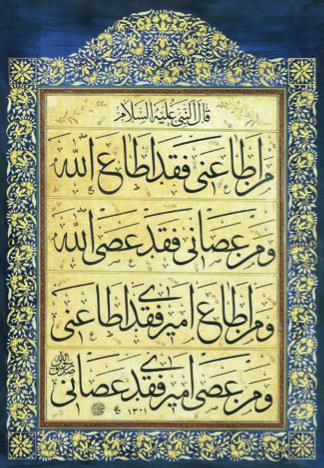 قال النبي عليه السلام
من اطاعني فقد اطاع الله
ومن عصاني فقد عصى الله
ومن اطاع اميري فقد اطاعني
ومن عصى اميري فقد عصاني